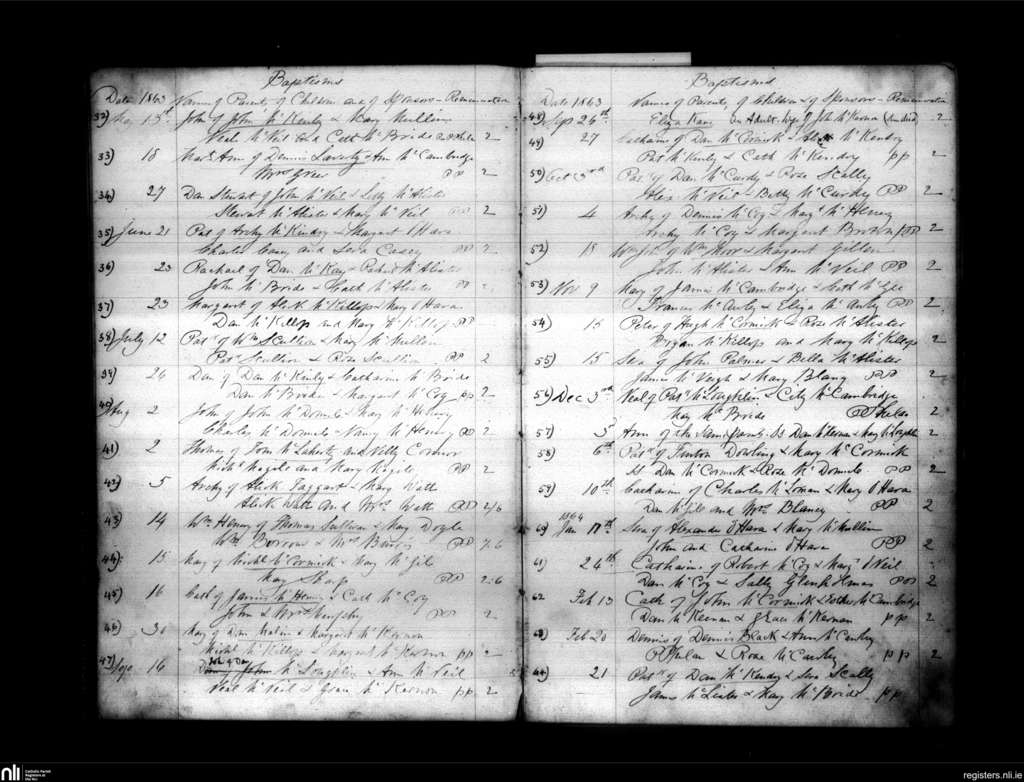 Baptisms
Date 1863 Names of Parents, of Children and of Sponsors - Remuneration
32) 15 John of John McKenly & Mary Mullin
Neal McNeil and Cath McBride 2
33) 18 Mary Ann of Dennis Laverty & Ann McCambridge
Mrs Greer PP 2
34) 27 Dan Stewart of John McNeil & Letty McAlister
Stewart McAlister & Mary McNeil PP 2
35) June 21 Pat of Archy McKendry & Margaret OHara
Charles Casey and Sera Casey PP 2
36) 23 Rachael of Dan McKay & McAlister
John McBride & McAlister PP 2
37) 23 Margaret of Alick McKillop & Mary OHara
Dan McKillop and Mary McKillop PP
38) July 12 Patk of Wm Scullion & Mary McMullen
Patk Scullion & Rose Scullion PP 2
39) 26 Dan of Dan McKinly & Catharine McBride
Dan McBride & Margaret McCoy pp 2
40) Aug 2 John of John McDonnel & Mary McHenry
Charles McDonnel & Nancy McHenry PP 2
41) 2 Thomas of Tom McLaherty and Kitty Connor
Michl Magill and Mary Magill PP 2
42) 5 Archy of Alick Taggart & Mary Watt
Alick Watt and Mrs Watt PP 2/6
43) 14 Wm Henry of Thomas Sullivan & Mary Doyle
Wm Burrows & Mrs Burrows PP 2.6
44) 15 Mary of Michl McCormick & Mary McGil
Mary Sharp PP 2.6
45) 16 Cath of James McHenry & Cath McCoy
John & Mrs Murphy PP 2
46) 30 Mary of Dan & Margaret McKernon
Michl McKillop & Margaret McKernon pp 2
47) Sep 16 John of Dan McLaughlin & Ann McNeil
Neal McNeil & Grace McKernon pp 2
Baptisms
Date 1863 Names of Parents, of Children & of Sponsors - Remuneration
48) Sept 26th Eliza Kane an Adult wife of Joh McKernon 2
49) 27 Catharine of Dan McCormick & McKendry
Pat McKinly & Cath McKendry pp 2
50) Oct 3rd Pat of Dan McCurdy & Rose Scally
Alex McNeil & Betty McCurdy PP 2
51) 4 Archy of Dennis McCoy & Margt McHenry
Archy McCoy & Margaret Brown PP 2
52) 18 Wm Jos of Wm Moor & Margaret Gillen
John McAlister & Ann McNeil PP 2
53) Nov 9 Mary of James McCambridge & Cath McGee
Francis McAuly & Eliza McAuly PP 2
54) 15 Peter of Hugh McCormick & Rose McAlister
McKillop and Mary McKillop 2
55) 15 Sera of John Palmer & Bella McAlister
James McVeigh & Mary Blany PP 2
56) Dec 3rd Neal of Patk McLoughlin & City McCambridge
Mary McBride PP Phelan 2
57) 3 Ann of the Same Parents. Ss Dan McKernon & Mary McLoughlin 2
58) 6th Patk of Fenton Dowling & Mary McCormick
Ss Dan McCormick & Rose McDonnele PP 2
59) 10th Catharine of Charles McLoman & Mary OHara
Dan McGile and Mrs Blaney PP 2
1864
60) Jan 17th Sera of Alexander OHara & Mary McMullin
John and Catharine OHara PP 2
61) 24th Catharine of Robert McCoy & Mary ONeil
Dan McCoy & Sally PP 2
62 Feb 13 Cath of John McCormick & Esther McCambridge
Dan McKernan & Grace McKernan pp 2
63) Feb 20 Dennis of Dennis Black & Ann McCurdy
P Phelan & Rose McCurdy pp 2
64) 21 Patk of Dan McKendry & Sera Scally
James McLister & Mary McBride pp
nli
Catholic Parish
Registers at
the NLI
registers.nli.ie